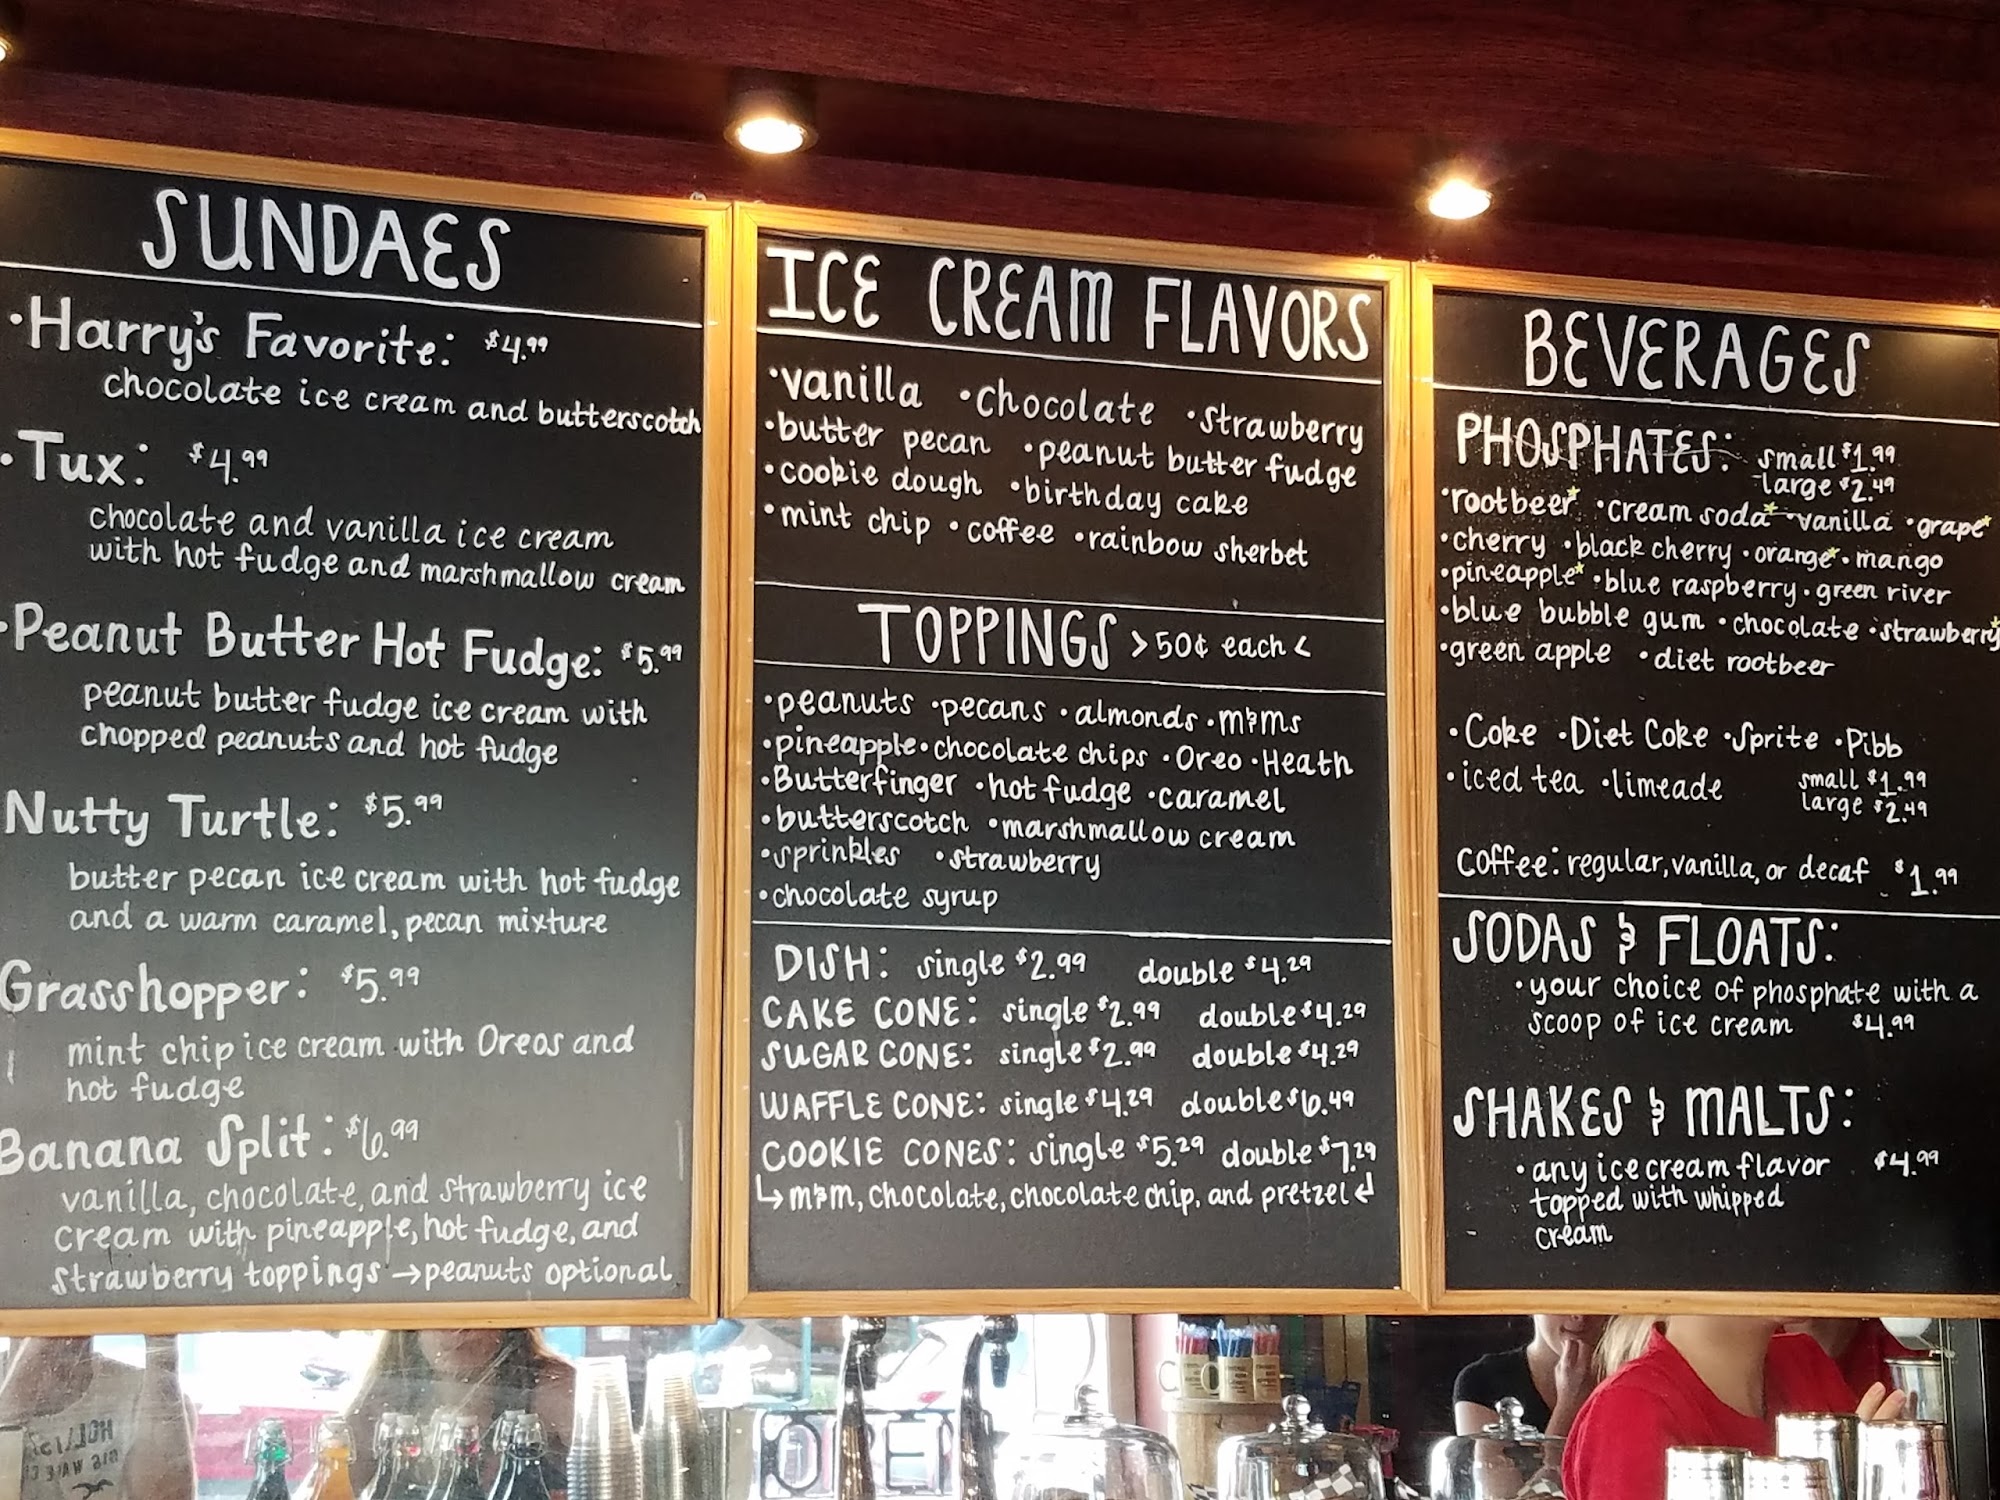 SUNDAES
·Harry's Favorite: $4.99
chocolate ice cream and butterscotch
·Tux: $4.99
chocolate and vanilla ice cream
with hot fudge and marshmallow cream
·Peanut Butter Hot Fudge: $5.99
peanut butter fudge ice cream with
chopped peanuts and hot fudge
Nutty Turtle: $5.99
butter pecan ice cream with hot fudge
and a warm caramel, pecan mixture
Grasshopper: $5.99
mint chip ice cream with Oreos and
hot fudge
Banana Split: $6.99
vanilla, chocolate, and strawberry ice
cream with pineapple, hot fudge, and
strawberry toppings → peanuts optional
ICE CREAM FLAVORS
·vanilla ·chocolate ·strawberry
·butter pecan ·peanut butter fudge
·cookie dough ·birthday cake
·mint chip ·coffee ·rainbow sherbet
TOPPINGS >50¢ each<
·peanuts ·pecans ·almonds ·m&ms
·pineapple ·chocolate chips ·Oreo ·Heath
·Butterfinger ·hot fudge ·caramel
·butterscotch ·marshmallow cream
·sprinkles ·strawberry
·chocolate syrup
DISH: single $2.99 double $4.29
CAKE CONE: single $2.99 double $4.29
SUGAR CONE: single $2.99 double $4.29
WAFFLE CONE: single $4.29 double $6.49
COOKIE CONES: single $5.29 double $7.29
↳ m&m, chocolate, chocolate chip, and pretzel ↲
BEVERAGES
PHOSPHATES: small $1.99
large $2.49
·rootbeer* ·cream soda* ·vanilla ·grape*
·cherry ·black cherry ·orange* ·mango
·pineapple* ·blue raspberry ·green river
·blue bubble gum ·chocolate ·strawberry*
·green apple ·diet rootbeer
·Coke ·Diet Coke ·Sprite ·Pibb
·iced tea ·limeade small $1.99
large $2.49
Coffee: regular, vanilla, or decaf $1.99
SODAS & FLOATS:
·your choice of phosphate with a
scoop of ice cream $4.99
SHAKES & MALTS:
·any ice cream flavor $4.99
topped with whipped
cream
OPEN